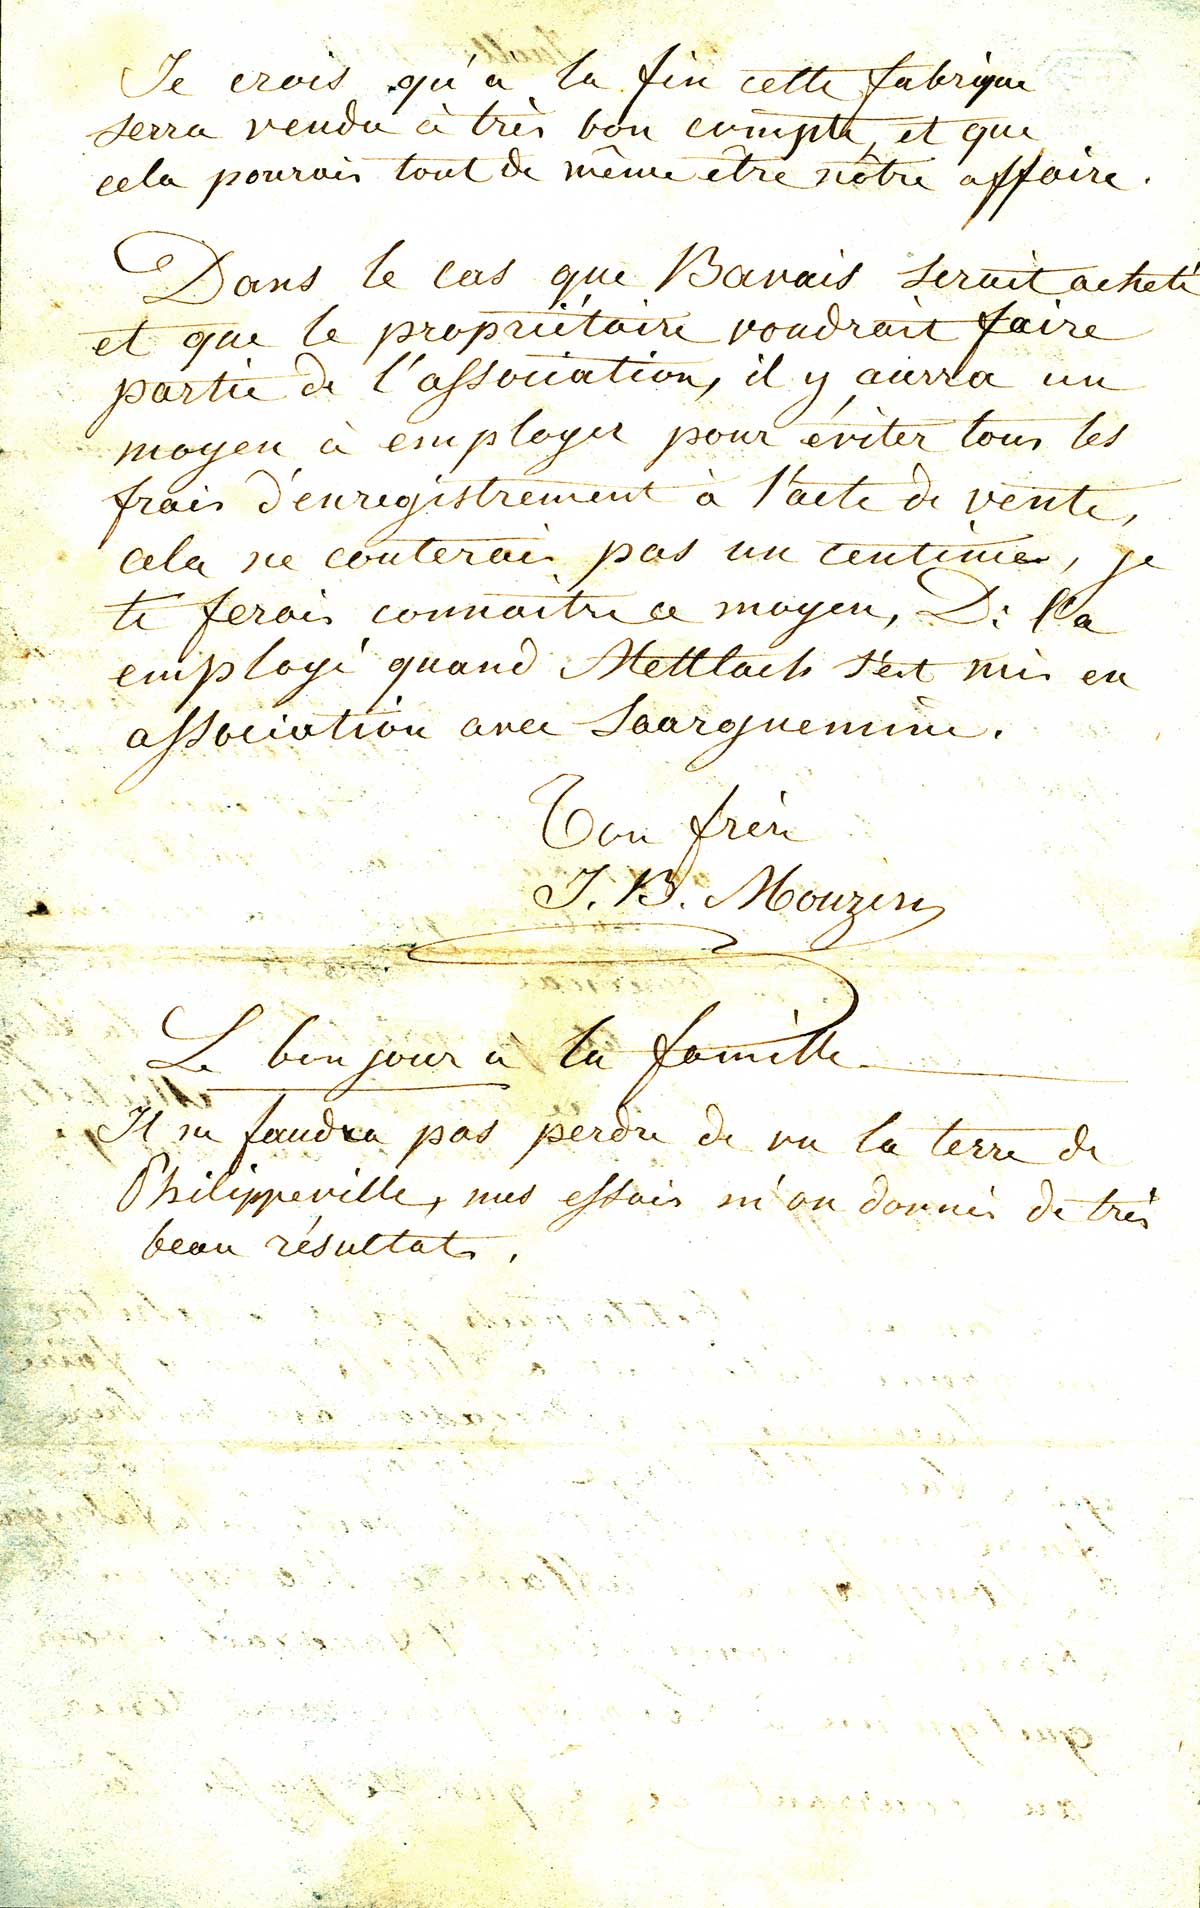 Je crois qu'a la fin cette fabrique
serra vendu à très bon compte, et que
cela pourais tout de même être nôtre affaire.
Dans le cas que Bavais serait acheté
et que le propriétaire voudrait faire
partie de l'association, il y aurra un
moyen à employer pour éviter tous les
frais d'enregistrement à l'acte de vente,
cela ne couterais pas un centimes, je
te ferais connaitre ce moyen, D: l'a
employé quand Mettlach s'est mis en
association avec Saarguemine.
Ton frère
J. B. Mouzin
Le bonjour à la famille
Il ne faudra pas perdre de vu la terre de
Philippeville, mes essais m'on donnés de très
beau résultats.